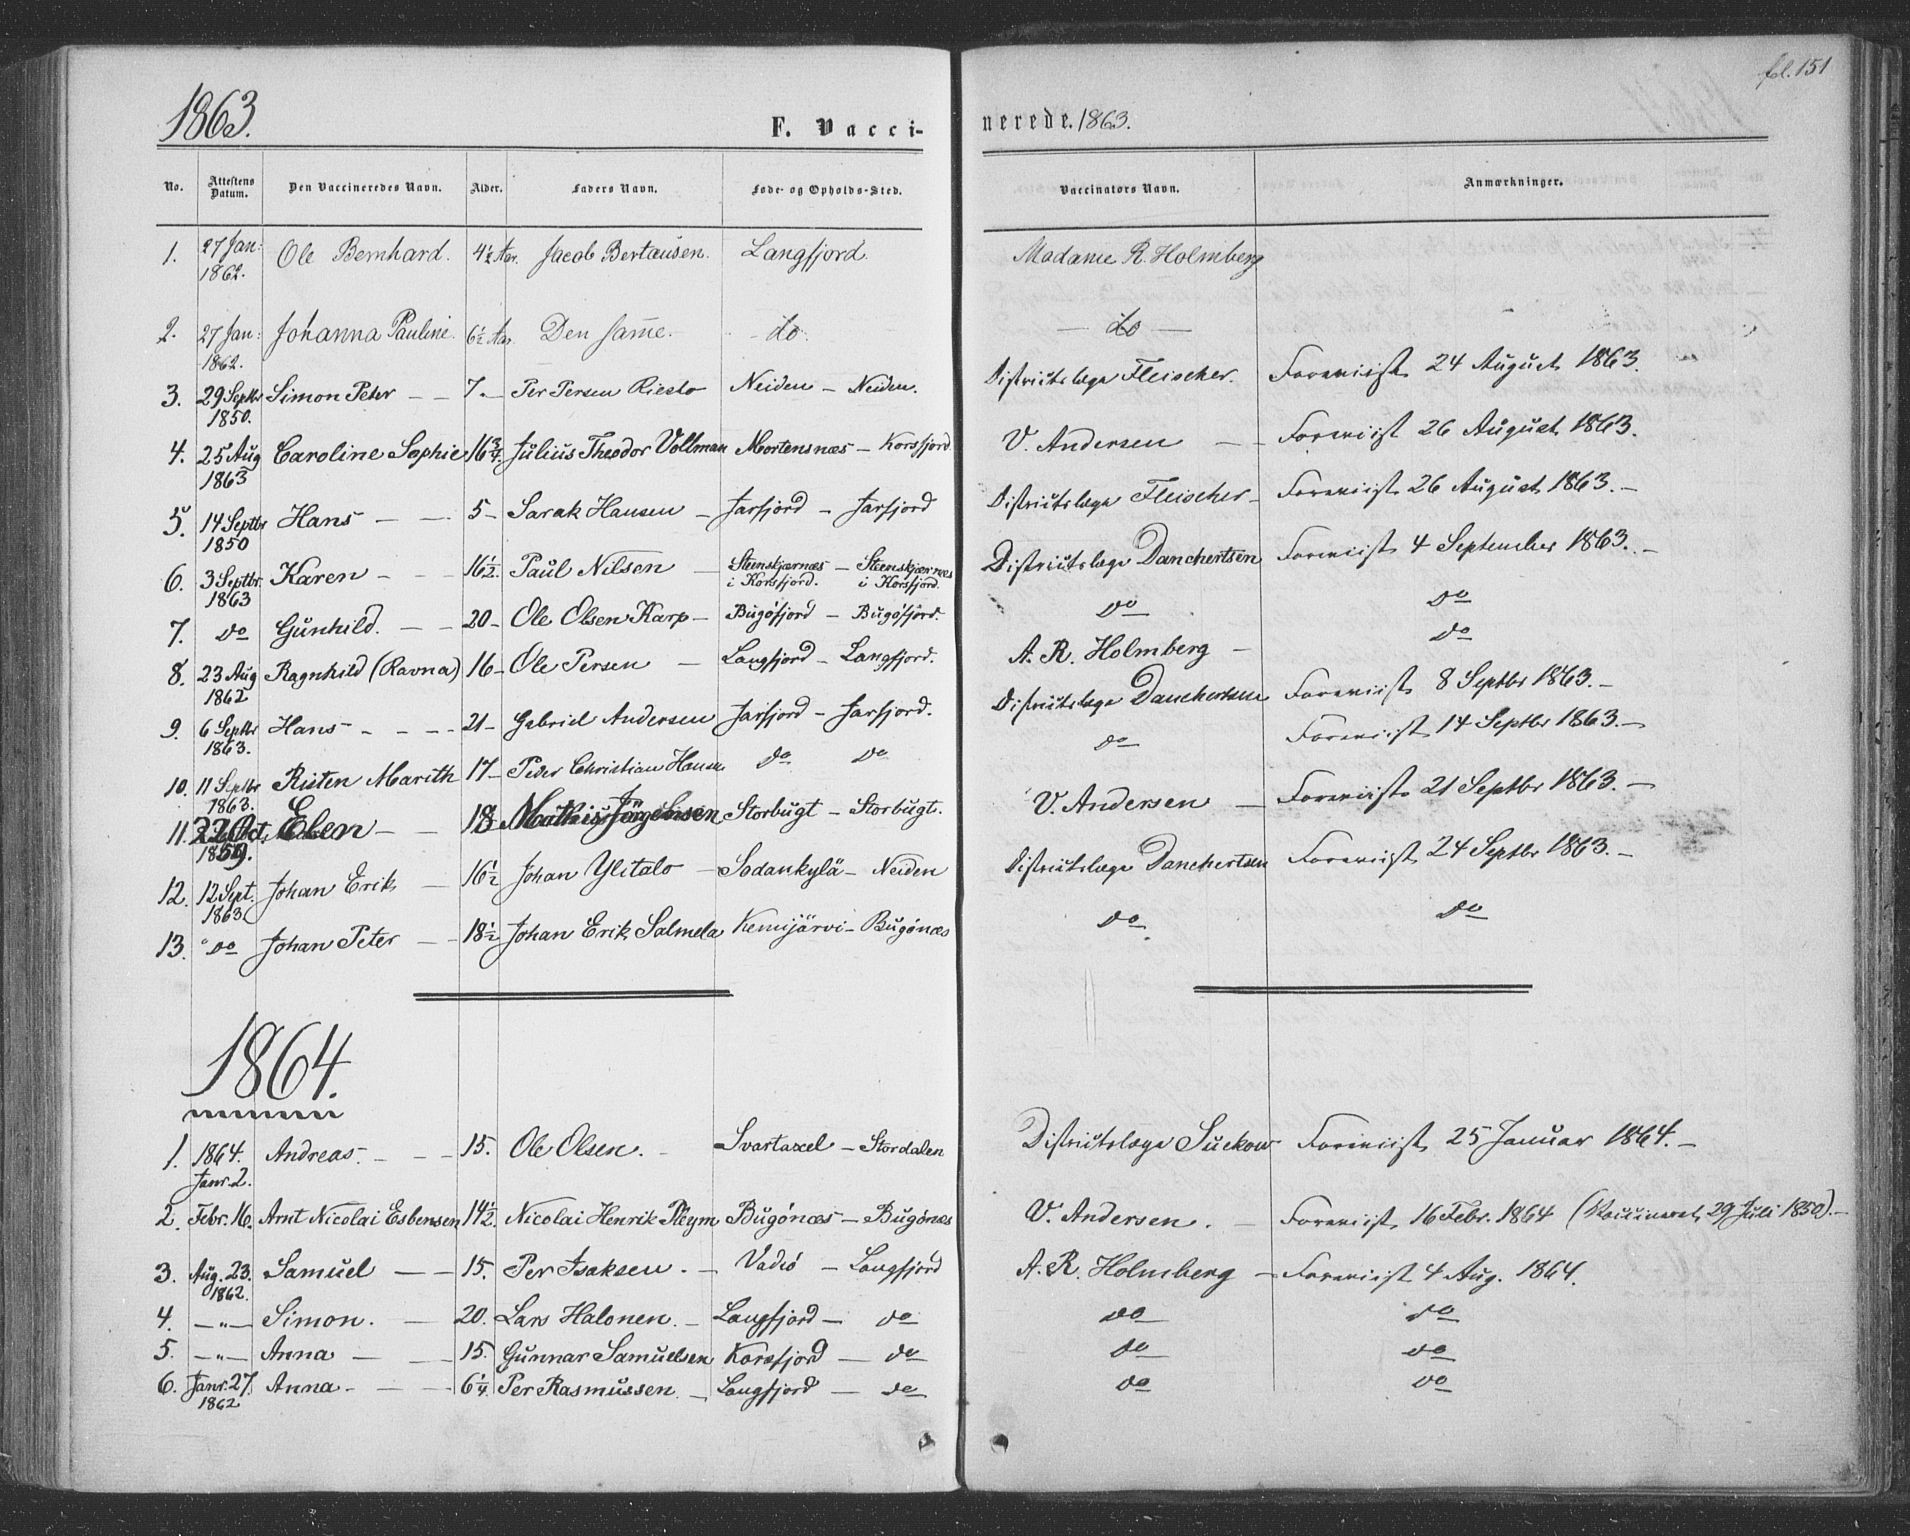 1863.
F. Vacci-
nerede. 1863.
fol. 151
No. Attestens Datum. Den Vaccineredes Navn. Alder. Faders Navn. Føde- og Opholds-Sted. Vaccinators Navn. Anmærkninger.
1. 27 Jan: 1862. Ole Bernhard. 4½ Aar. Jacob Bertausen. Langfjord. Madame R. Holmberg
2. 27 Jan: 1862. Johanna Pauline. 6½ Aar Den samme. - do - - do -
3. 29 Septbr 1850. Simon Peter - - 7 - Per Persen Riesto Neiden - Neiden. Distriktslæge Fleischer. Foreviist 24 August 1863.
4. 25 Aug 1863 Caroline Sophie 16¾. Julius Theodor Voltman Mortensnæs - Korsfjord V. Andersen - Foreviist 26 August 1863.
5. 14 Septbr 1850 Hans - - 5 - Sarak Hansen - Jarfjord - Jarfjord Distriktslæge Fleischer - Foreviist 26 August 1863. -
6. 3 Septbr. 1863 Karen - - - 16½. Paul Nilsen - Steenskjærnæs i Korsfjord. - Steenskjærnæs i Korsfjord. Distriktslæge Danchertsen Foreviist 4 September 1863. -
7. do Gunhild. - - 20 - Ole Olsen Karp - Bugøfjord - Bugøfjord. do do
8. 23 Aug 1862 Ragnhild (Ravna) 16 - Ole Persen - Langfjord - Langfjord. A. R. Holmberg - do
9. 6 Septbr 1863. Hans - - - - 21 - Gabriel Andersen Jarfjord - Jarfjord. Distriktslæge Danchertsen Foreviist 8 Septbr 1863. -
10. 11 Septbr 1863. Risten Marith 17 - Peder Christian Hansen do do do Foreviist 14 Septbr 1863. -
11. 22 Oct. 1859. Elen - - 18 Mathis Jörgensen Storbugt - Storbugt. V. Andersen - Foreviist 21 Septbr 1863. -
12. 12 Sept. 1863 Johan Erik - 16½ Johan Ylitalo - Sodankylä - Neiden Distriktslæge Danchertsen Foreviist 24 Septbr 1863. -
13. do Johan Peter - - 18½ Johan Erik Salmela Kemijärvi - Bugönæs do do
1864.
1. 1864. Janr. 2. Andreas. - - - 15. Ole Olsen. - Svartaxel - Stordalen Distriktslæge Suckow Foreviist 25 Januar 1864. -
2. Febr. 16. Arnt Nicolai Esbensen 14½. Nicolai Henrik Pleym Bugönæs - Bugönæs V. Andersen. - Foreviist 16 Febr. 1864 (Vaccineret 29 Juli 1850). -
3. Aug. 23. 1862. Samuel - - 15. Per Isaksen. - Vadsö - Langfjord A. R. Holmberg - Foreviist 4 Aug. 1864.
4. -"- Simon. - 20. Lars Halonen. - Langfjord - do do do
5. -"- Anna - - 15. Gunnar Samuelsen Korsfjord - do do do
6. Janr. 27. 1862 Anna - - - 6¼. Per Rasmussen - Langfjord - do do do